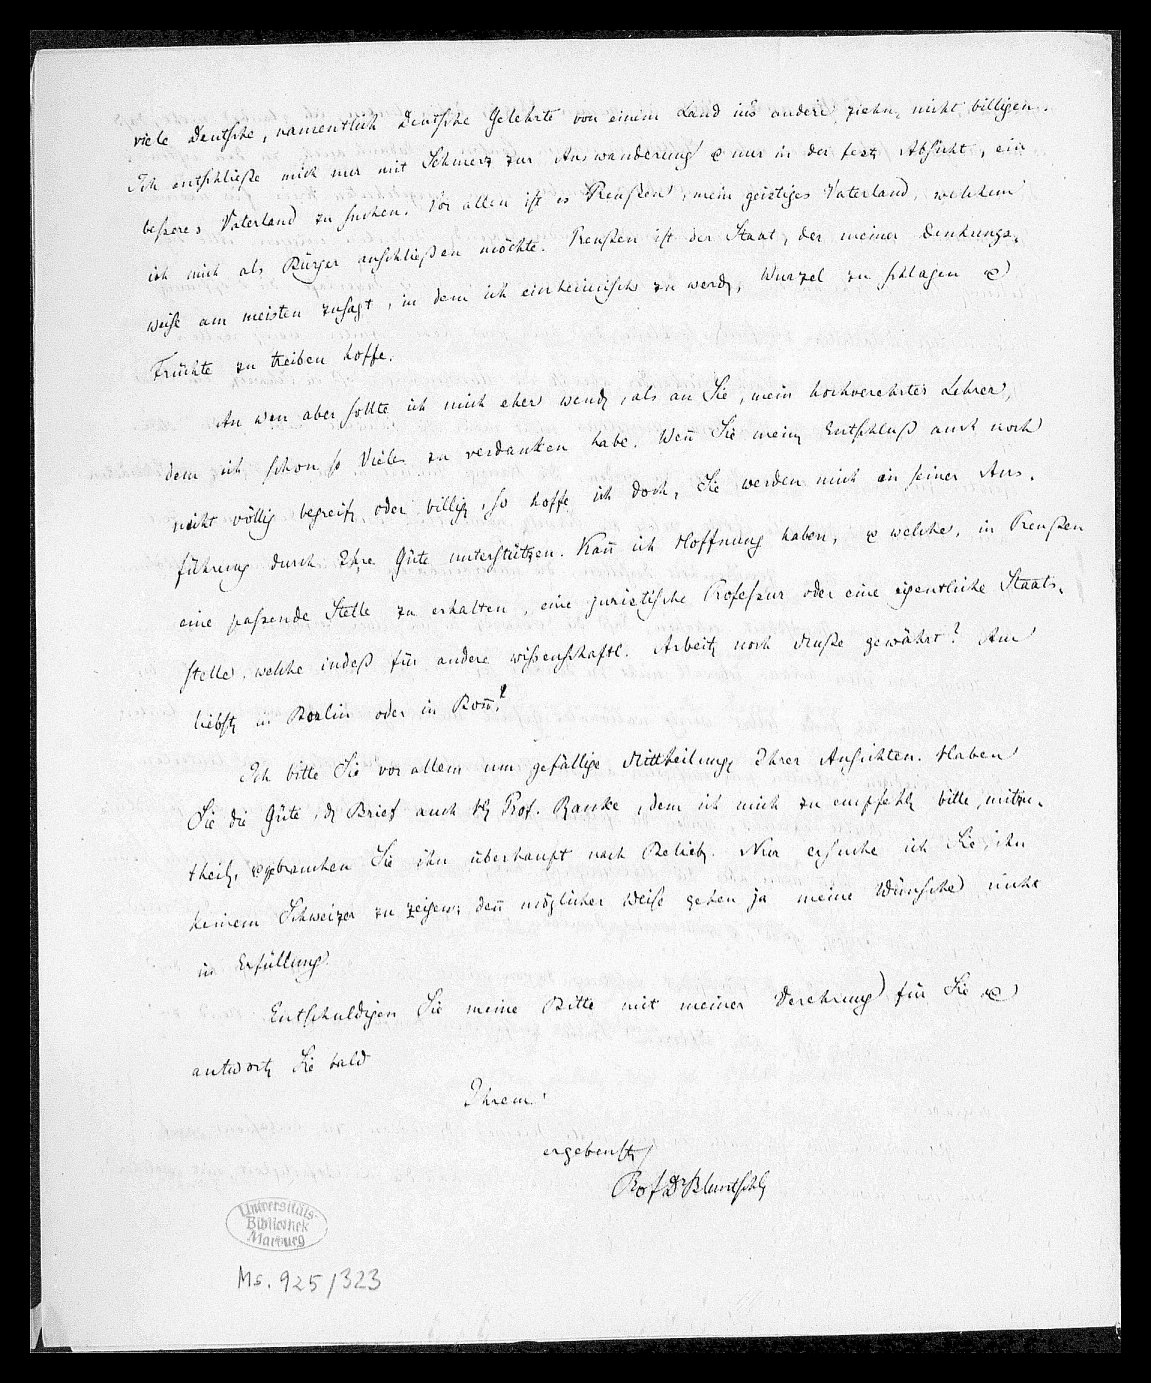 viele Deutsche, namentlich Deutsche Gelehrte von einem Land ins andere ziehn, nicht billigen.
Ich entschließe mich nur mit Schmerz zur Auswanderung & nur in der festen Absicht, ein
beßeres Vaterland zu suchen. Vor allen ist es Preußen, mein geistiges Vaterland, welchem
ich mich als Bürger anschließen möchte. Preußen ist der Staat, der meiner Denkungs-
weise am meisten zusagt, in dem ich einheimisch zu werden, Wurzel zu schlagen &
Früchte zu treiben hoffe.
An wen aber sollte ich mich eher wenden, als an Sie, mein hochverehrter Lehrer,
dem ich schon so Vieles zu verdanken habe. Wen̄ Sie meinen Entschluß auch noch
nicht völlig begreifen oder billigen, so hoffe ich doch, Sie werden mich in seiner Aus-
führung durch Ihre Güte unterstützen. Kan̄ ich Hoffnung haben, & welche, in Preußen
eine paßende Stelle zu erhalten, eine juristische Profeßur oder eine eigentliche Staats-
stelle, welche indeß für andere wißenschaftl. Arbeiten noch Muße gewährt? Am
liebsten in Berlin oder in Bon̄?
Ich bitte Sie vor allem um gefällige Mittheilung Ihrer Ansichten. Haben
Sie die Güte, den Brief auch H. Prof. Ranke, dem ich mich zu empfehlen bitte, mitzu-
theilen, & gebrauchen Sie ihn überhaupt nach Belieben. Nur ersuche ich Sie, ihn
keinem Schweizer zu zeigen; den̄ möglicher Weise gehen ja meine Wünsche nicht
in Erfüllung.
Entschuldigen Sie meine Bitte mit meiner Verehrung für Sie &
antworten Sie bald
Ihrem
ergebensten
Prof Dr Bluntschli
Universitäts-
Bibliothek
Marburg
Ms. 925/323